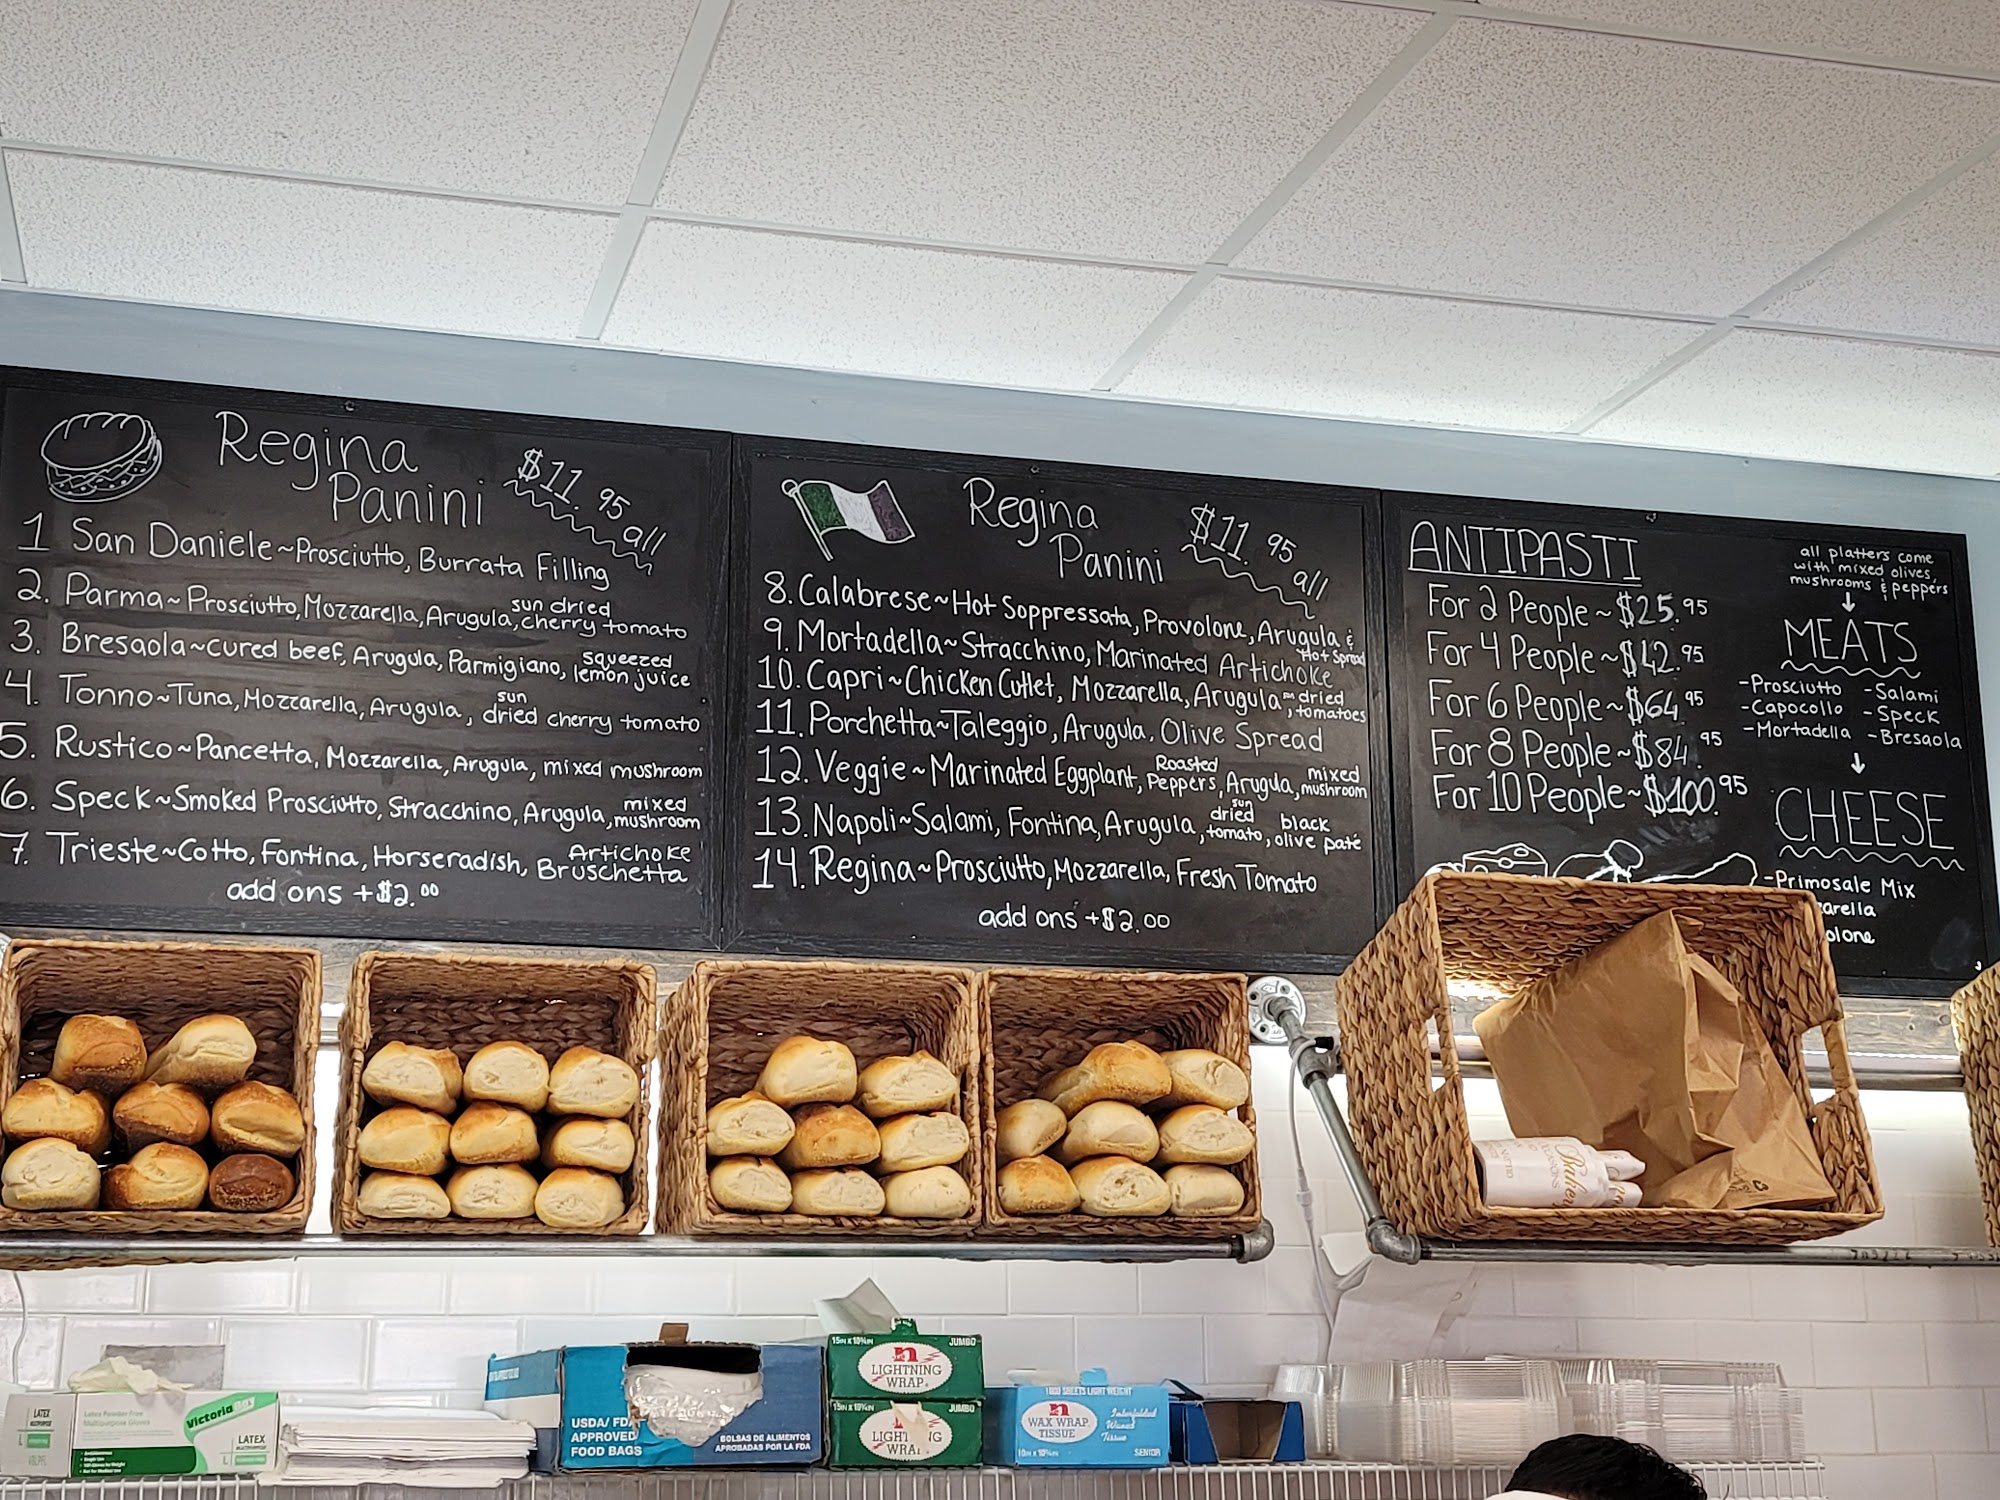 Regina
Panini
$11.95 all
1 San Daniele~Prosciutto, Burrata Filling
2. Parma~Prosciutto, Mozzarella, Arugula, sun dried cherry tomato
3. Bresaola~cured beef, Arugula, Parmigiano, squeezed lemon juice
4. Tonno~Tuna, Mozzarella, Arugula, sun dried cherry tomato
5. Rustico~Pancetta, Mozzarella, Arugula, mixed mushroom
6. Speck~Smoked Prosciutto, Stracchino, Arugula, mixed mushroom
7. Trieste~Cotto, Fontina, Horseradish, Artichoke Bruschetta
add ons +$2.00
Regina
Panini
$11.95 all
8. Calabrese~Hot Soppressata, Provolone, Arugula & Hot Spread
9. Mortadella~Stracchino, Marinated Artichoke
10. Capri~Chicken Cutlet, Mozzarella, Arugula, sun dried tomatoes
11. Porchetta~Taleggio, Arugula, Olive Spread
12. Veggie~Marinated Eggplant, Roasted Peppers, Arugula, mixed mushroom
13. Napoli~Salami, Fontina, Arugula, sun dried tomato, black olive paté
14. Regina~Prosciutto, Mozzarella, Fresh Tomato
add ons +$2.00
ANTIPASTI
For 2 People~$25.95
For 4 People~$42.95
For 6 People~$64.95
For 8 People~$84.95
For 10 People~$100.95
all platters come
with mixed olives,
mushrooms & peppers
MEATS
-Prosciutto -Salami
-Capocollo -Speck
-Mortadella -Bresaola
CHEESE
-Primosale Mix
arella
olone
LATEX
L
Latex Powder Free
Multipurpose Gloves
Victoria Bay
LATEX
L
USDA/ FDA
APPROVED
FOOD BAGS
BOLSAS DE ALIMENTOS
APROBADAS POR LA FDA
15IN X 10¾IN JUMBO
n
LIGHTNING
WRAP
15IN X 10¾IN JUMBO
LIGHT NG
WRA
1000 SHEETS LIGHT WEIGHT
n
WAX WRAP
TISSUE
Interfolded
Waxed
Tissue
10IN X 10¾IN SENIOR